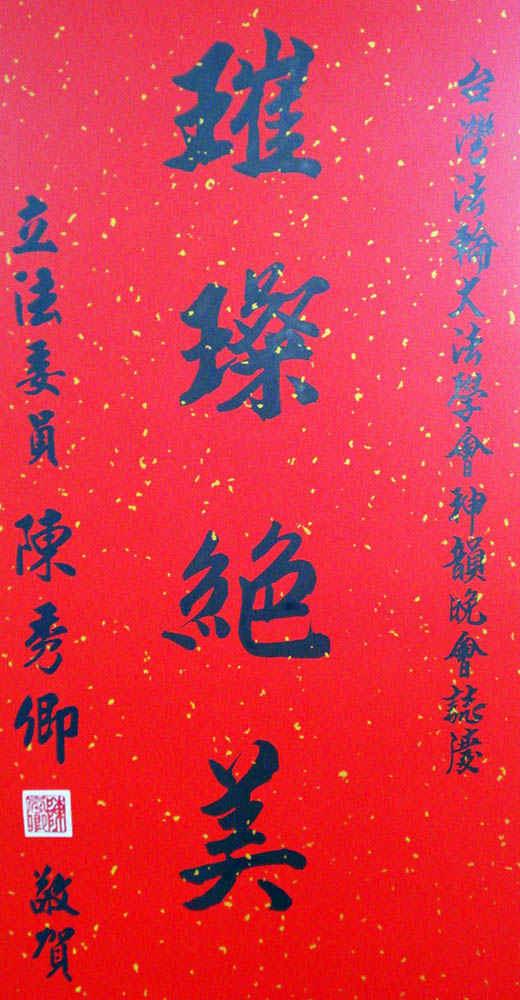 台灣法輪大法學會神韻晚會誌慶
璀璨絕美
立法委員 陳秀卿 敬賀